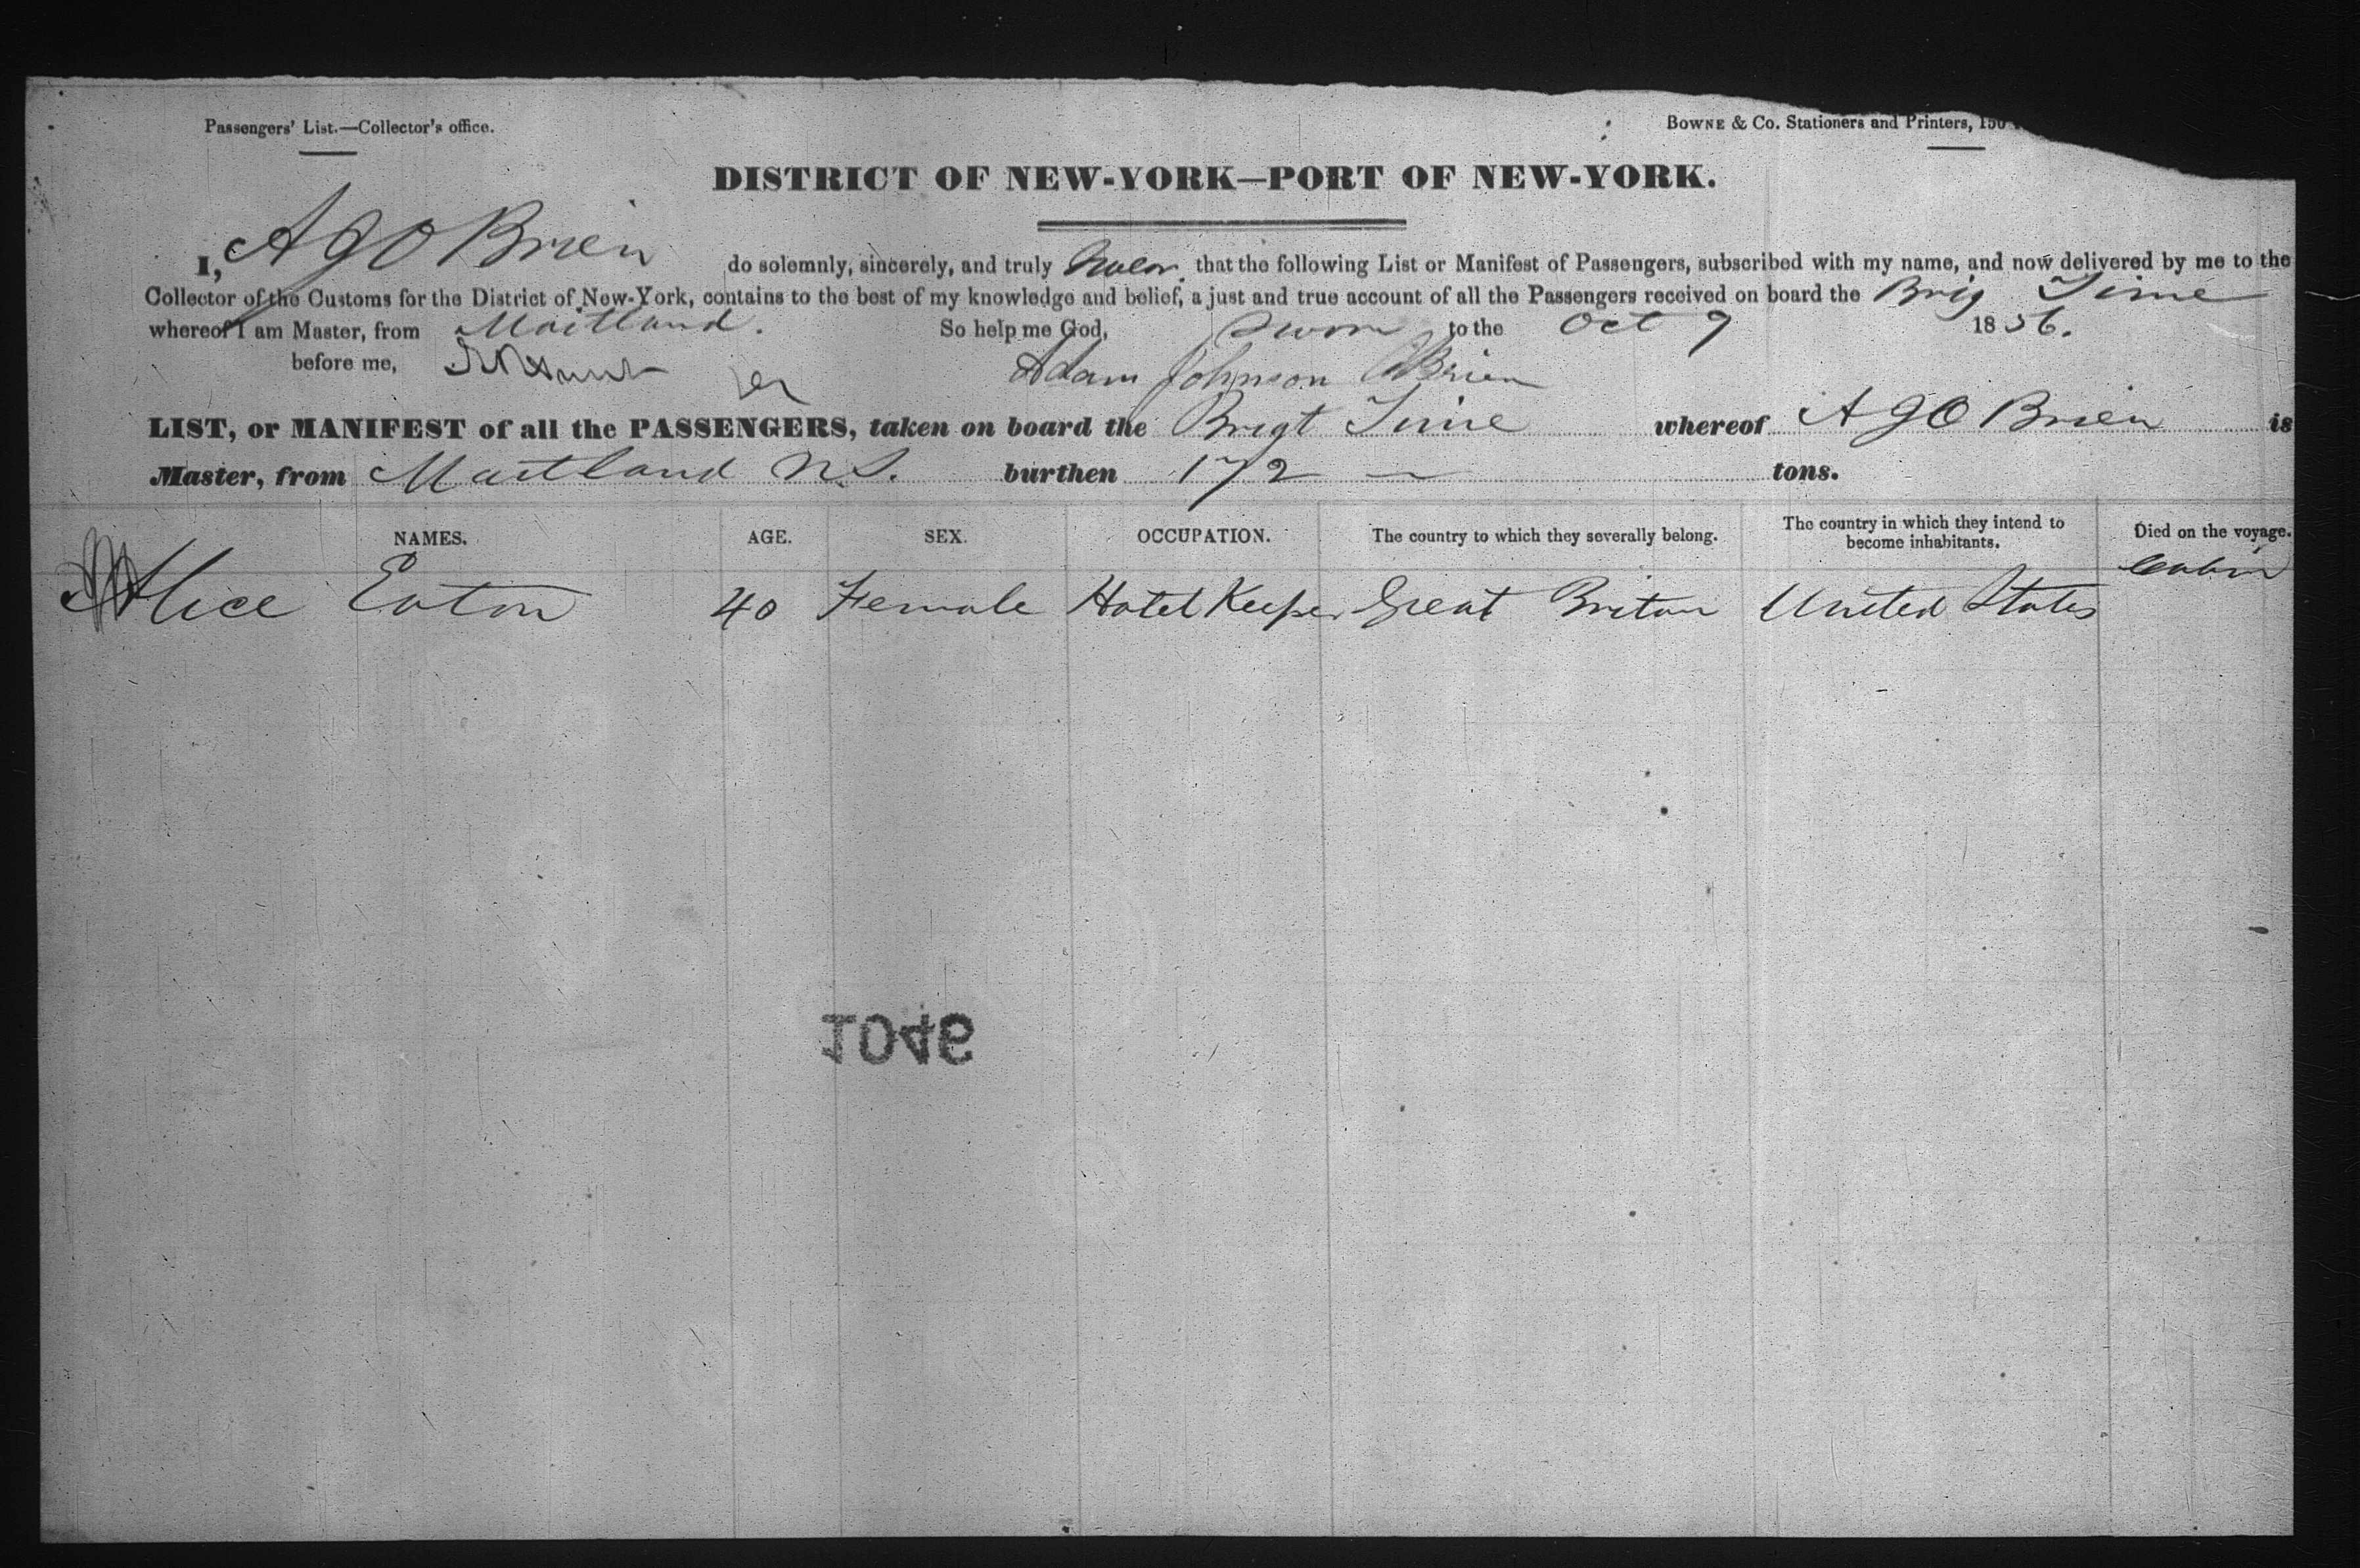 Passengers' List.—Collector's office.
BOWNE & Co. Stationers and Printers, 150
DISTRICT OF NEW-YORK—PORT OF NEW-YORK.
I, A J O Brien do solemnly, sincerely, and truly Swear that the following List or Manifest of Passengers, subscribed with my name, and now delivered by me to the
Collector of the Customs for the District of New-York, contains to the best of my knowledge and belief, a just and true account of all the Passengers received on board the Brig
whereof I am Master, from Maitland. So help me God, Sworn to the Oct 9 1856.
before me,
Adam Johnson OBrien
LIST, or MANIFEST of all the PASSENGERS, taken on board the Brigt whereof A J O Brien is
Master, from Maitland N.S. burthen 172 tons.
NAMES. AGE. SEX. OCCUPATION. The country to which they severally belong. The country in which they intend to become inhabitants. Died on the voyage.
Cabin
Alice Eaton 40 Female Hotel Keeper Great Britan United States